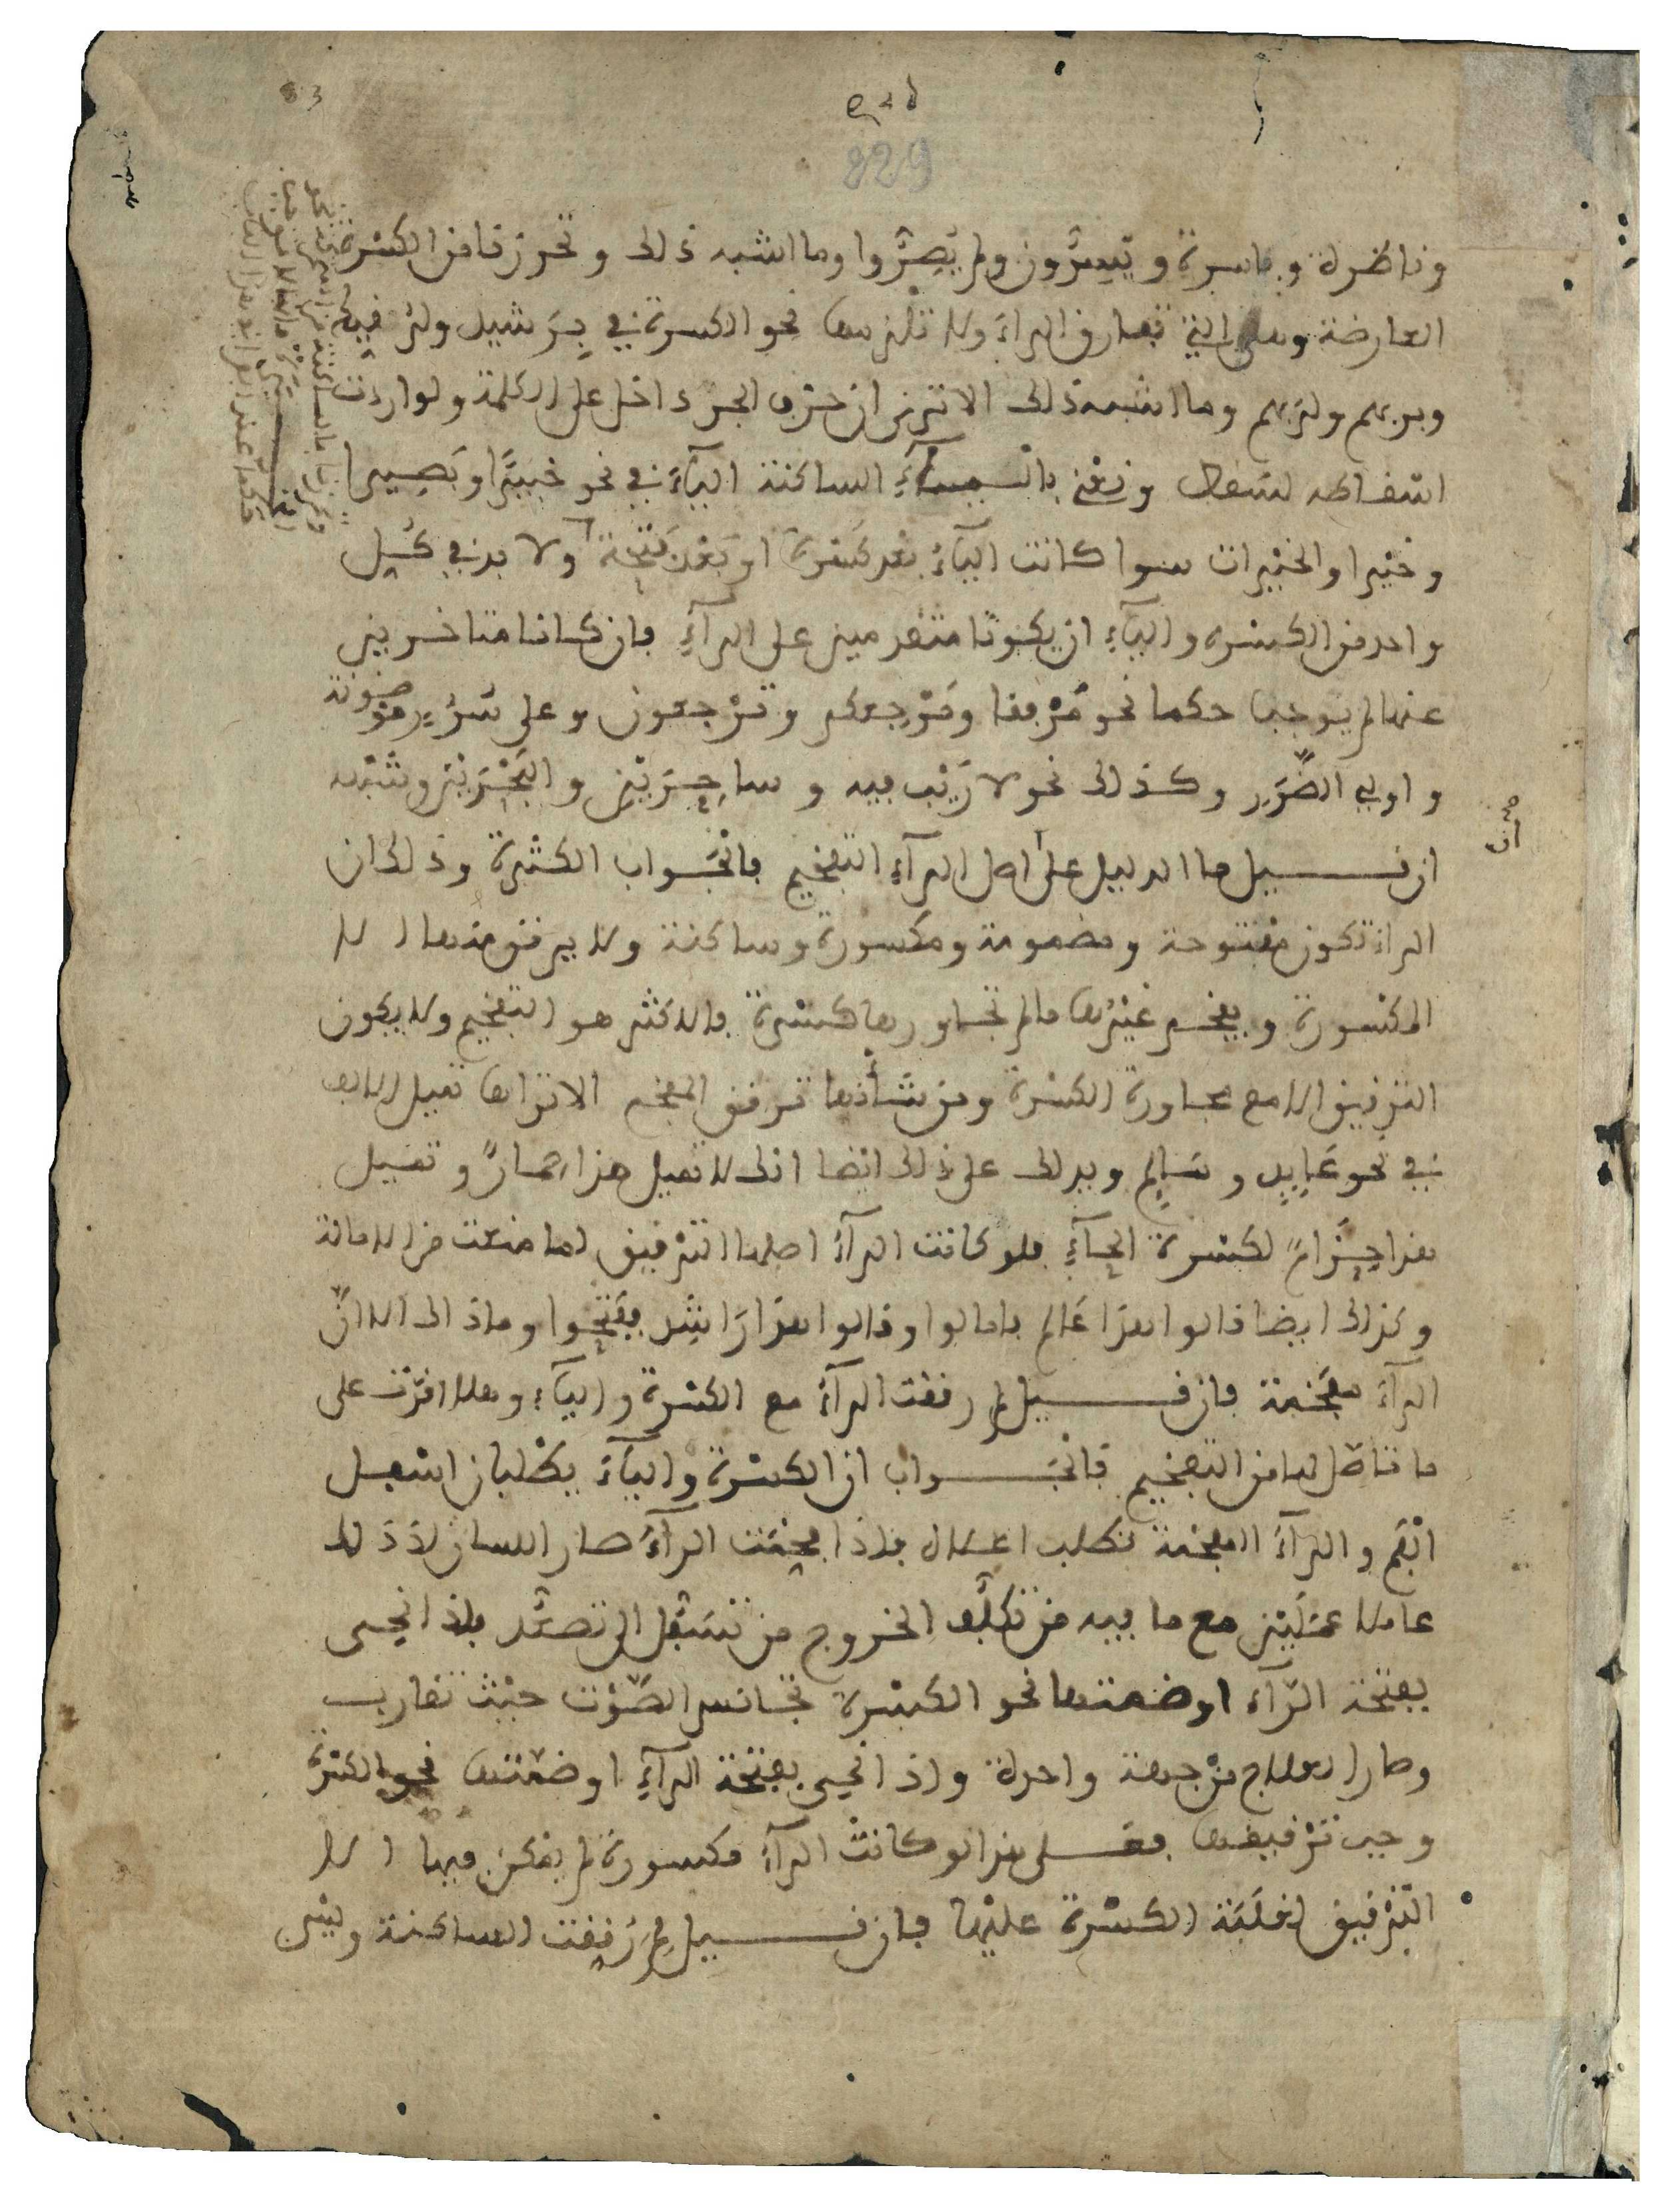 829
وناظرة وباسرة ويسرّون ولم يصرّوا وما اشبه ذلك وتحرزنا من الكسرة
العارضة وهي التي تفارق الراء ولا تلزمها نحو الكسرة في برشيد ولرقيك
وبربهم ولربهم وما اشبه ذلك الا ترى ان حرف الجر داخل على الكلمة ولو اردت
اسقاطه لسقط ونعني باليآء الساكنة اليآء في نحو خبيرًا وبصيرا
وخيرا والخيرات سوا كانت اليآء بعد كسرة او بعد فتحة ولا بد في كل
واحد من الكسرة واليآء ان يكونا متقدمين على الرآء فان كانا متاخرين
عنها لم يوجبا حكما نحو مرفقا ومرجعكم وترجعون وعلى سرر موضونة
واولي الضّرر وكذلك نحو لا ريب فيه وساحرين والبحرين وشبه
ان قيل ما الدليل على اصل الرآء التفخيم فالجواب الكثرة وذلك ان
الراء تكون مفتوحة ومضمومة ومكسورة وساكنة ولا يرقق منها الا
المكسورة ويفخم غيرها ما لم تجاورها كسرة فالاكثر هو التفخيم ولا يكون
الترقيق الا مع مجاورة الكسرة ومن شأنها ترقق المفخم الا تراها تميل الالف
في نحو عابد وسالم ويدلك على ذلك ايضا انك لا تميل هذا حمارٌ وتميل
هذا حزامٌ لكسرة الحآء فلو كانت الرآء اصلها الترقيق لما منعت من الامالة
وكذلك ايضا قالوا هذا عالم فامالوا وقالوا هذا راشد ففتحوا وما ذاك الا انّ
الرآء مفخمة فان قيل لم رققت الرآء مع الكسرة واليآء وهلا اقرّت على
ما تاصّل لها من التفخيم فالجواب ان الكسرة واليآء يطلبان اسفل
الفم والرآء المفخمة تطلب اعلاه فاذا فخمت الرآء صار اللسان اذ ذاك
عاملا عملين مع ما فيه من تكلّف الخروج من تسفّل الى تصعّد فاذا نحي
بفتحة الرّآء او ضمتها نحو الكسرة تجانس الصّوت حيث تقارب
وصار العلاج من جهة واحدة واذا نحي بفتحة الرآء او ضمّتها نحو الكسرة
وجب ترقيقها فعلى هذا لو كانت الرآء مكسورة لم يمكن فيها الا
التّرقيق لغلبة الكسرة عليها فان قيل لم رُققت الساكنة وليس
صح
ان